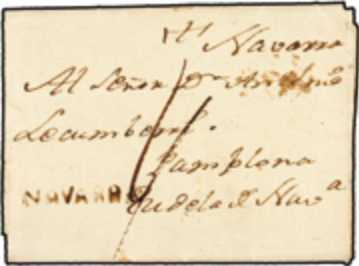 Navarra
Al Señor Dn Anselmo
Lecumberri.
Pamplona
NAVARRA
Tudela d Nava